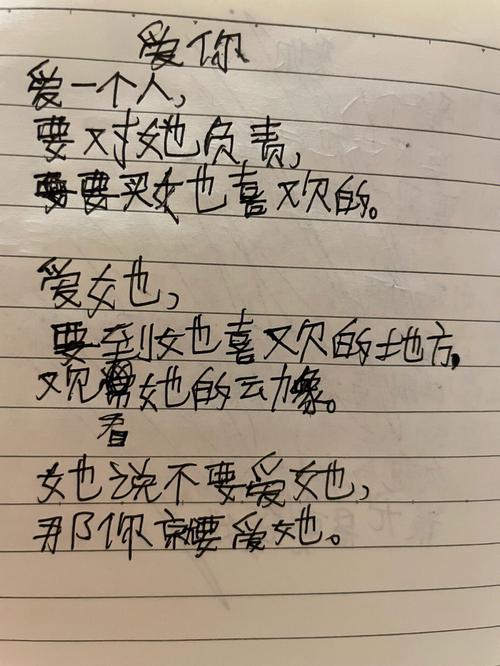 爱你
爱一个人，
要对她负责，
要买她喜欢的。
爱她，
要到她喜欢的地方，
观看她的云力像。
她说不要爱她，
那你就要爱她。